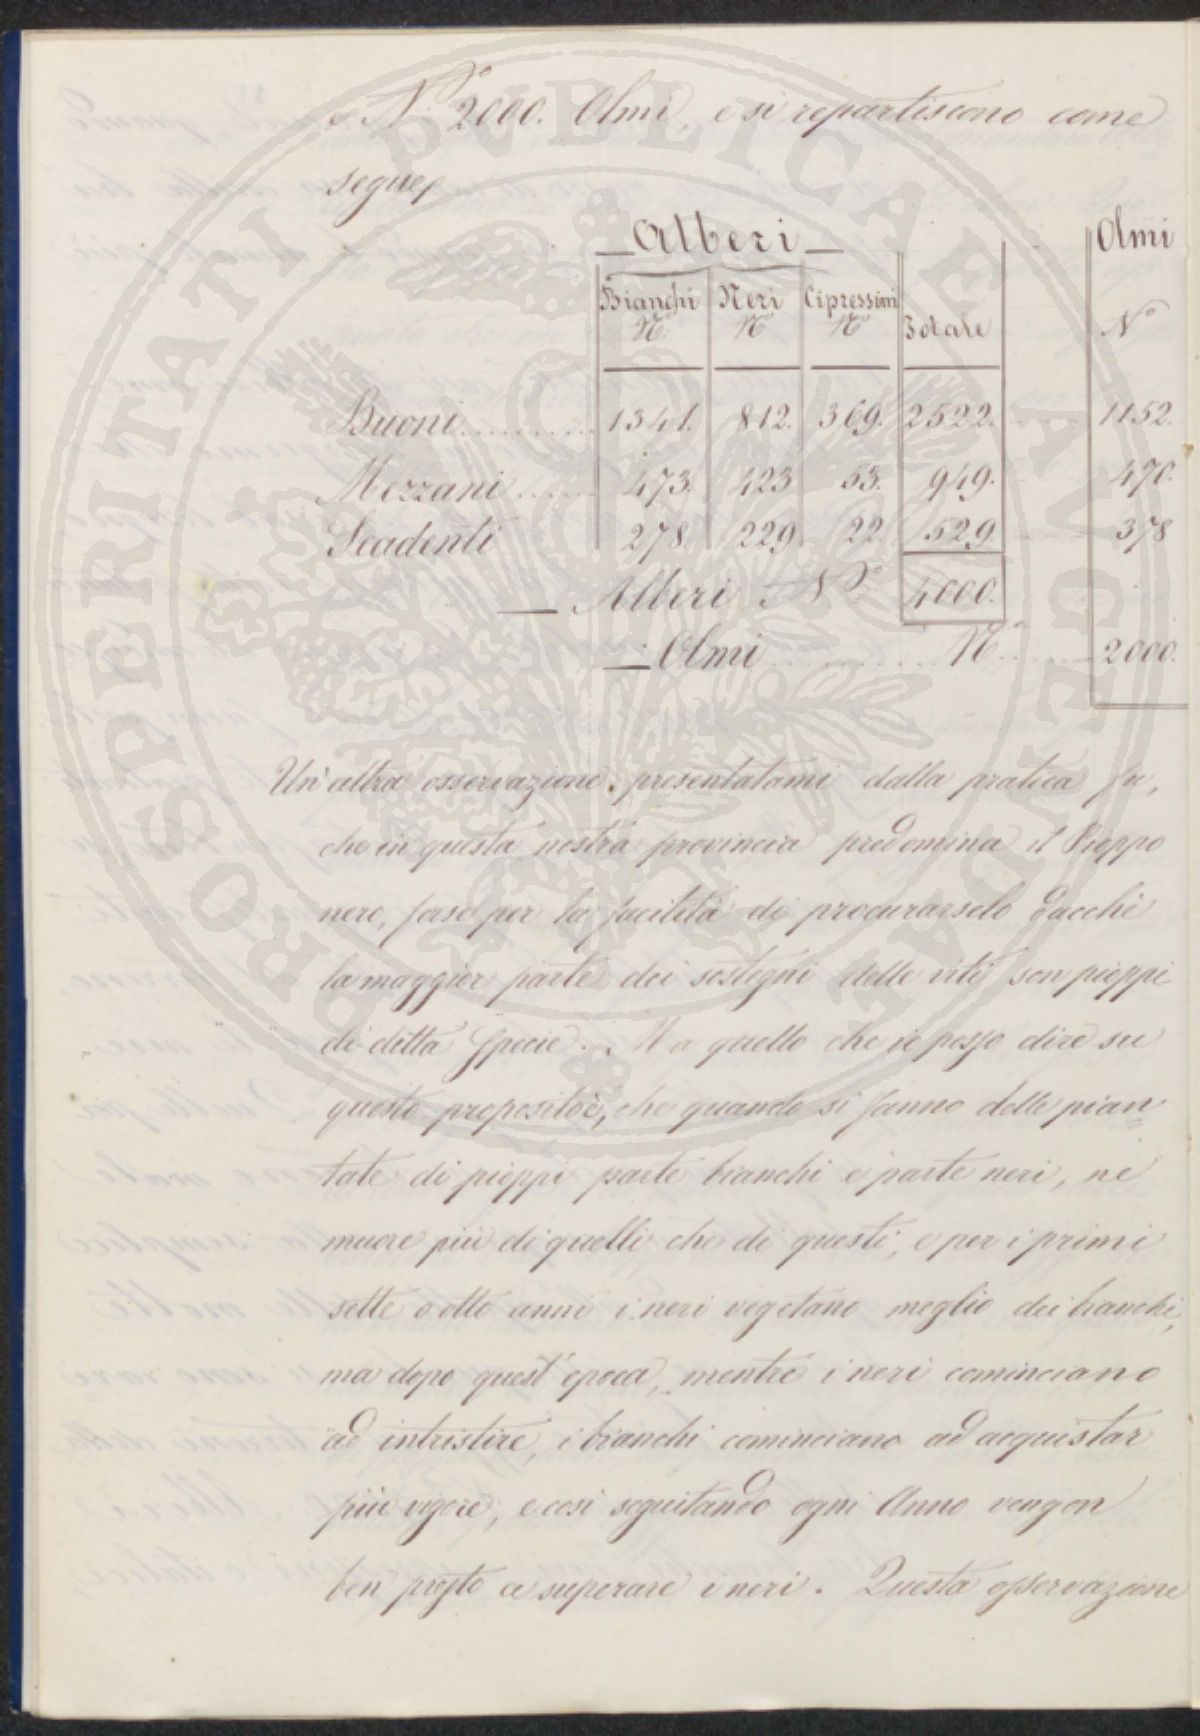 e N.° 2000. Olmi, e si repartiscono come
segue
Alberi
Olmi
Bianchi Neri Cipressini
N.° N.° N.° Totale N.°
Buoni.......... 1341. 812. 369. 2522. 1152.
Mezzani ...... 473. 423 53. 949. 470.
Scadenti 278. 229 22. 529 378
— Alberi N.° 4000.
— Olmi ............ N.° ...... 2000.
Un'altra osservazione presentatami dalla pratica fu,
che in questa nostra provincia predomina il Pioppo
nero, forse per la facilità di procurarselo dacchè
la maggior parte dei sostegni delle viti son pioppi
di detta specie. Ma quello che io posso dire su
questo proposito è, che quando si fanno delle pian-
tate di pioppi parte bianchi e parte neri, ne
muore più di quelli che di questi, e per i primi
sette o otto anni i neri vegetano meglio dei bianchi,
ma dopo quest'epoca, mentre i neri cominciano
ad intristire, i bianchi cominciano ad acquistar
più vigore, e così seguitando ogni Anno vengon
ben presto a superare i neri. Questa osservazione
PROSPERITATI PUBLICAE AUGENDAE